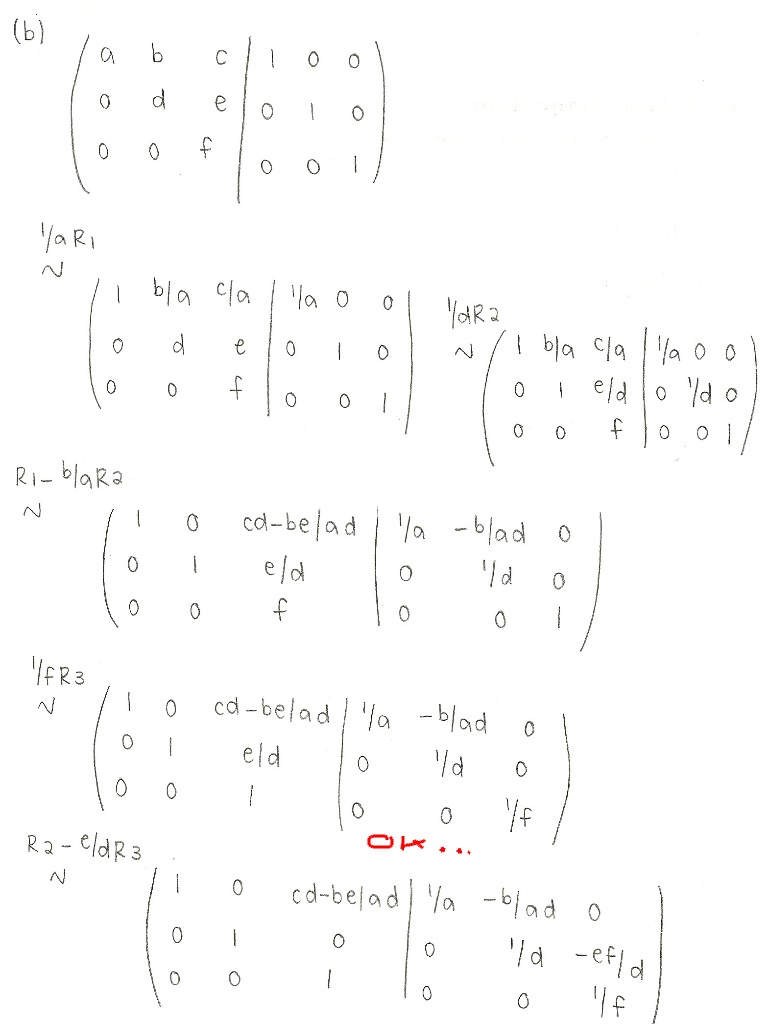 (b)
a b c | 1 0 0
0 d e | 0 1 0
0 0 f | 0 0 1
1/a R1
~
1 b/a c/a | 1/a 0 0
0 d e | 0 1 0
0 0 f | 0 0 1
1/d R2
~
1 b/a c/a | 1/a 0 0
0 1 e/d | 0 1/d 0
0 0 f | 0 0 1
R1 - b/a R2
~
1 0 cd-be/ad | 1/a -b/ad 0
0 1 e/d | 0 1/d 0
0 0 f | 0 0 1
1/f R3
~
1 0 cd-be/ad | 1/a -b/ad 0
0 1 e/d | 0 1/d 0
0 0 1 | 0 0 1/f
OK...
R2 - e/d R3
~
1 0 cd-be/ad | 1/a -b/ad 0
0 1 0 | 0 1/d -ef/d
0 0 1 | 0 0 1/f